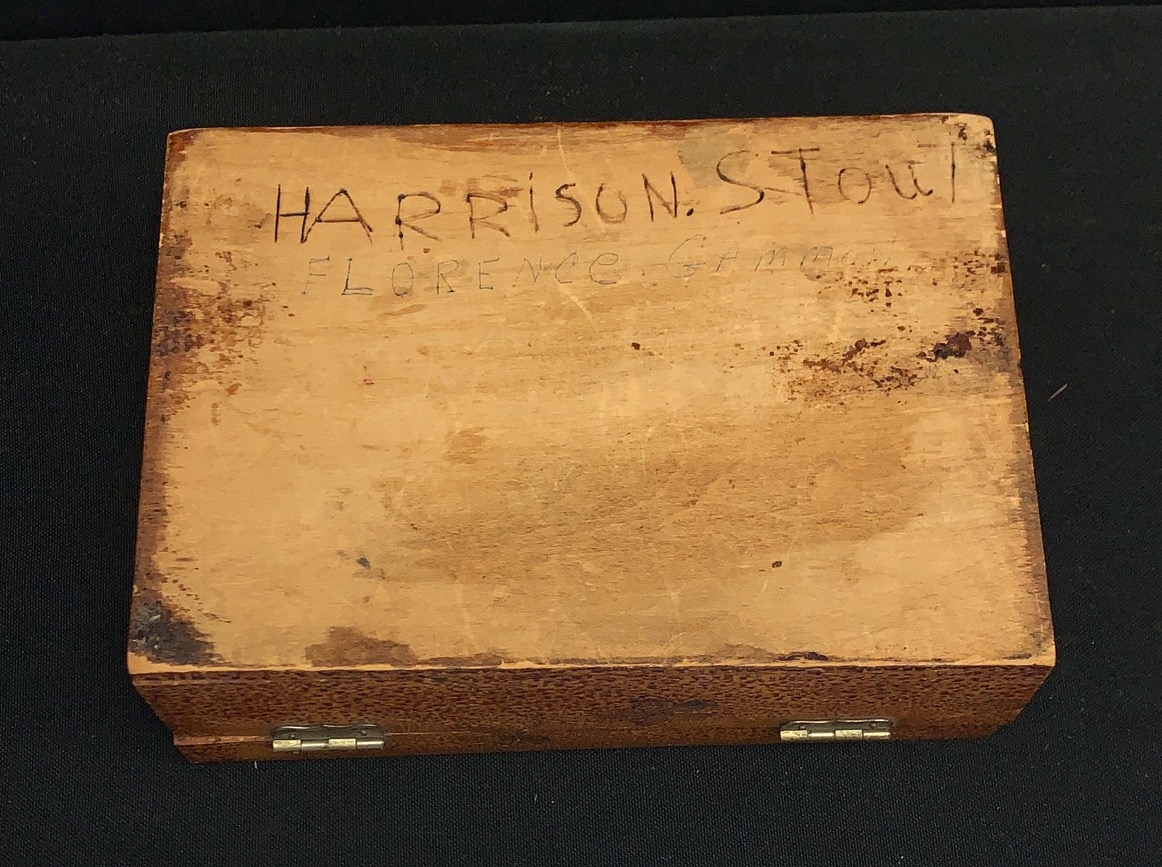 HARRiSON. STouT
FLORENCE Gammon